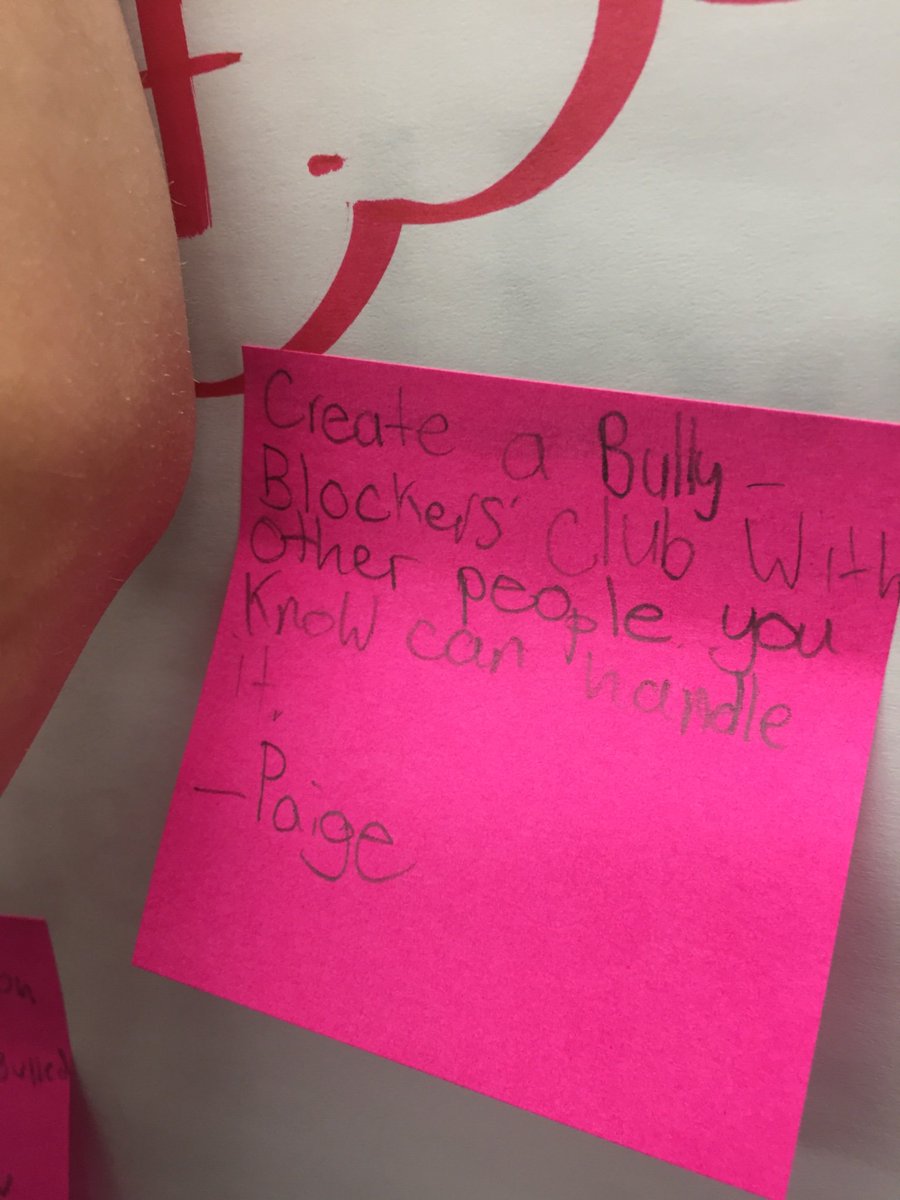 Create a Bully-
Blockers' Club With
Other people you
Know can handle
it.
-Paige
on
Bullied